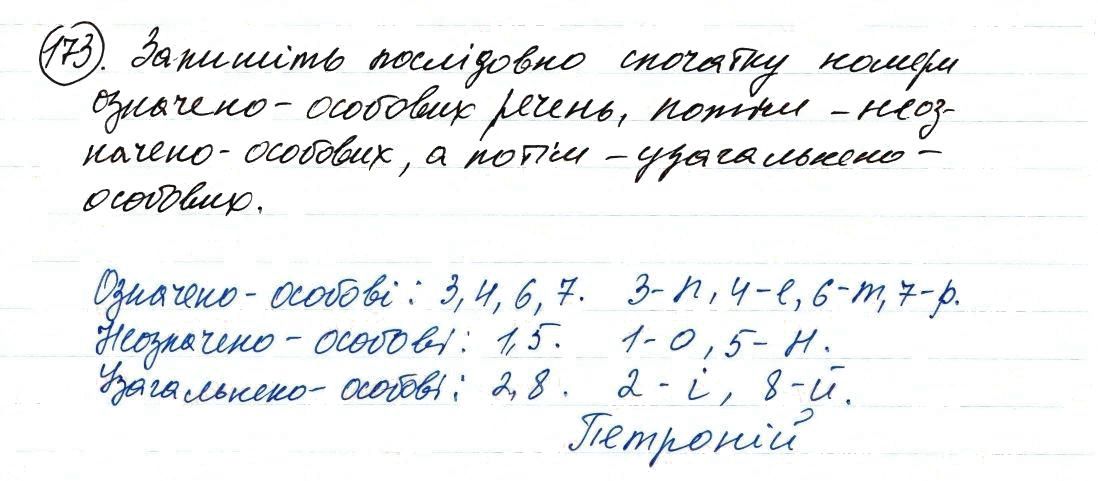 173. Запишіть послідовно спочатку номери
означено-особових речень, потім – неоз-
начено-особових, а потім – узагальнено-
особових.
Означено-особові: 3, 4, 6, 7. 3-п, 4-е, 6-т, 7-р.
Неозначено-особові: 1, 5. 1-о, 5-н.
Узагальнено-особові: 2, 8. 2-і, 8-й.
Петроній